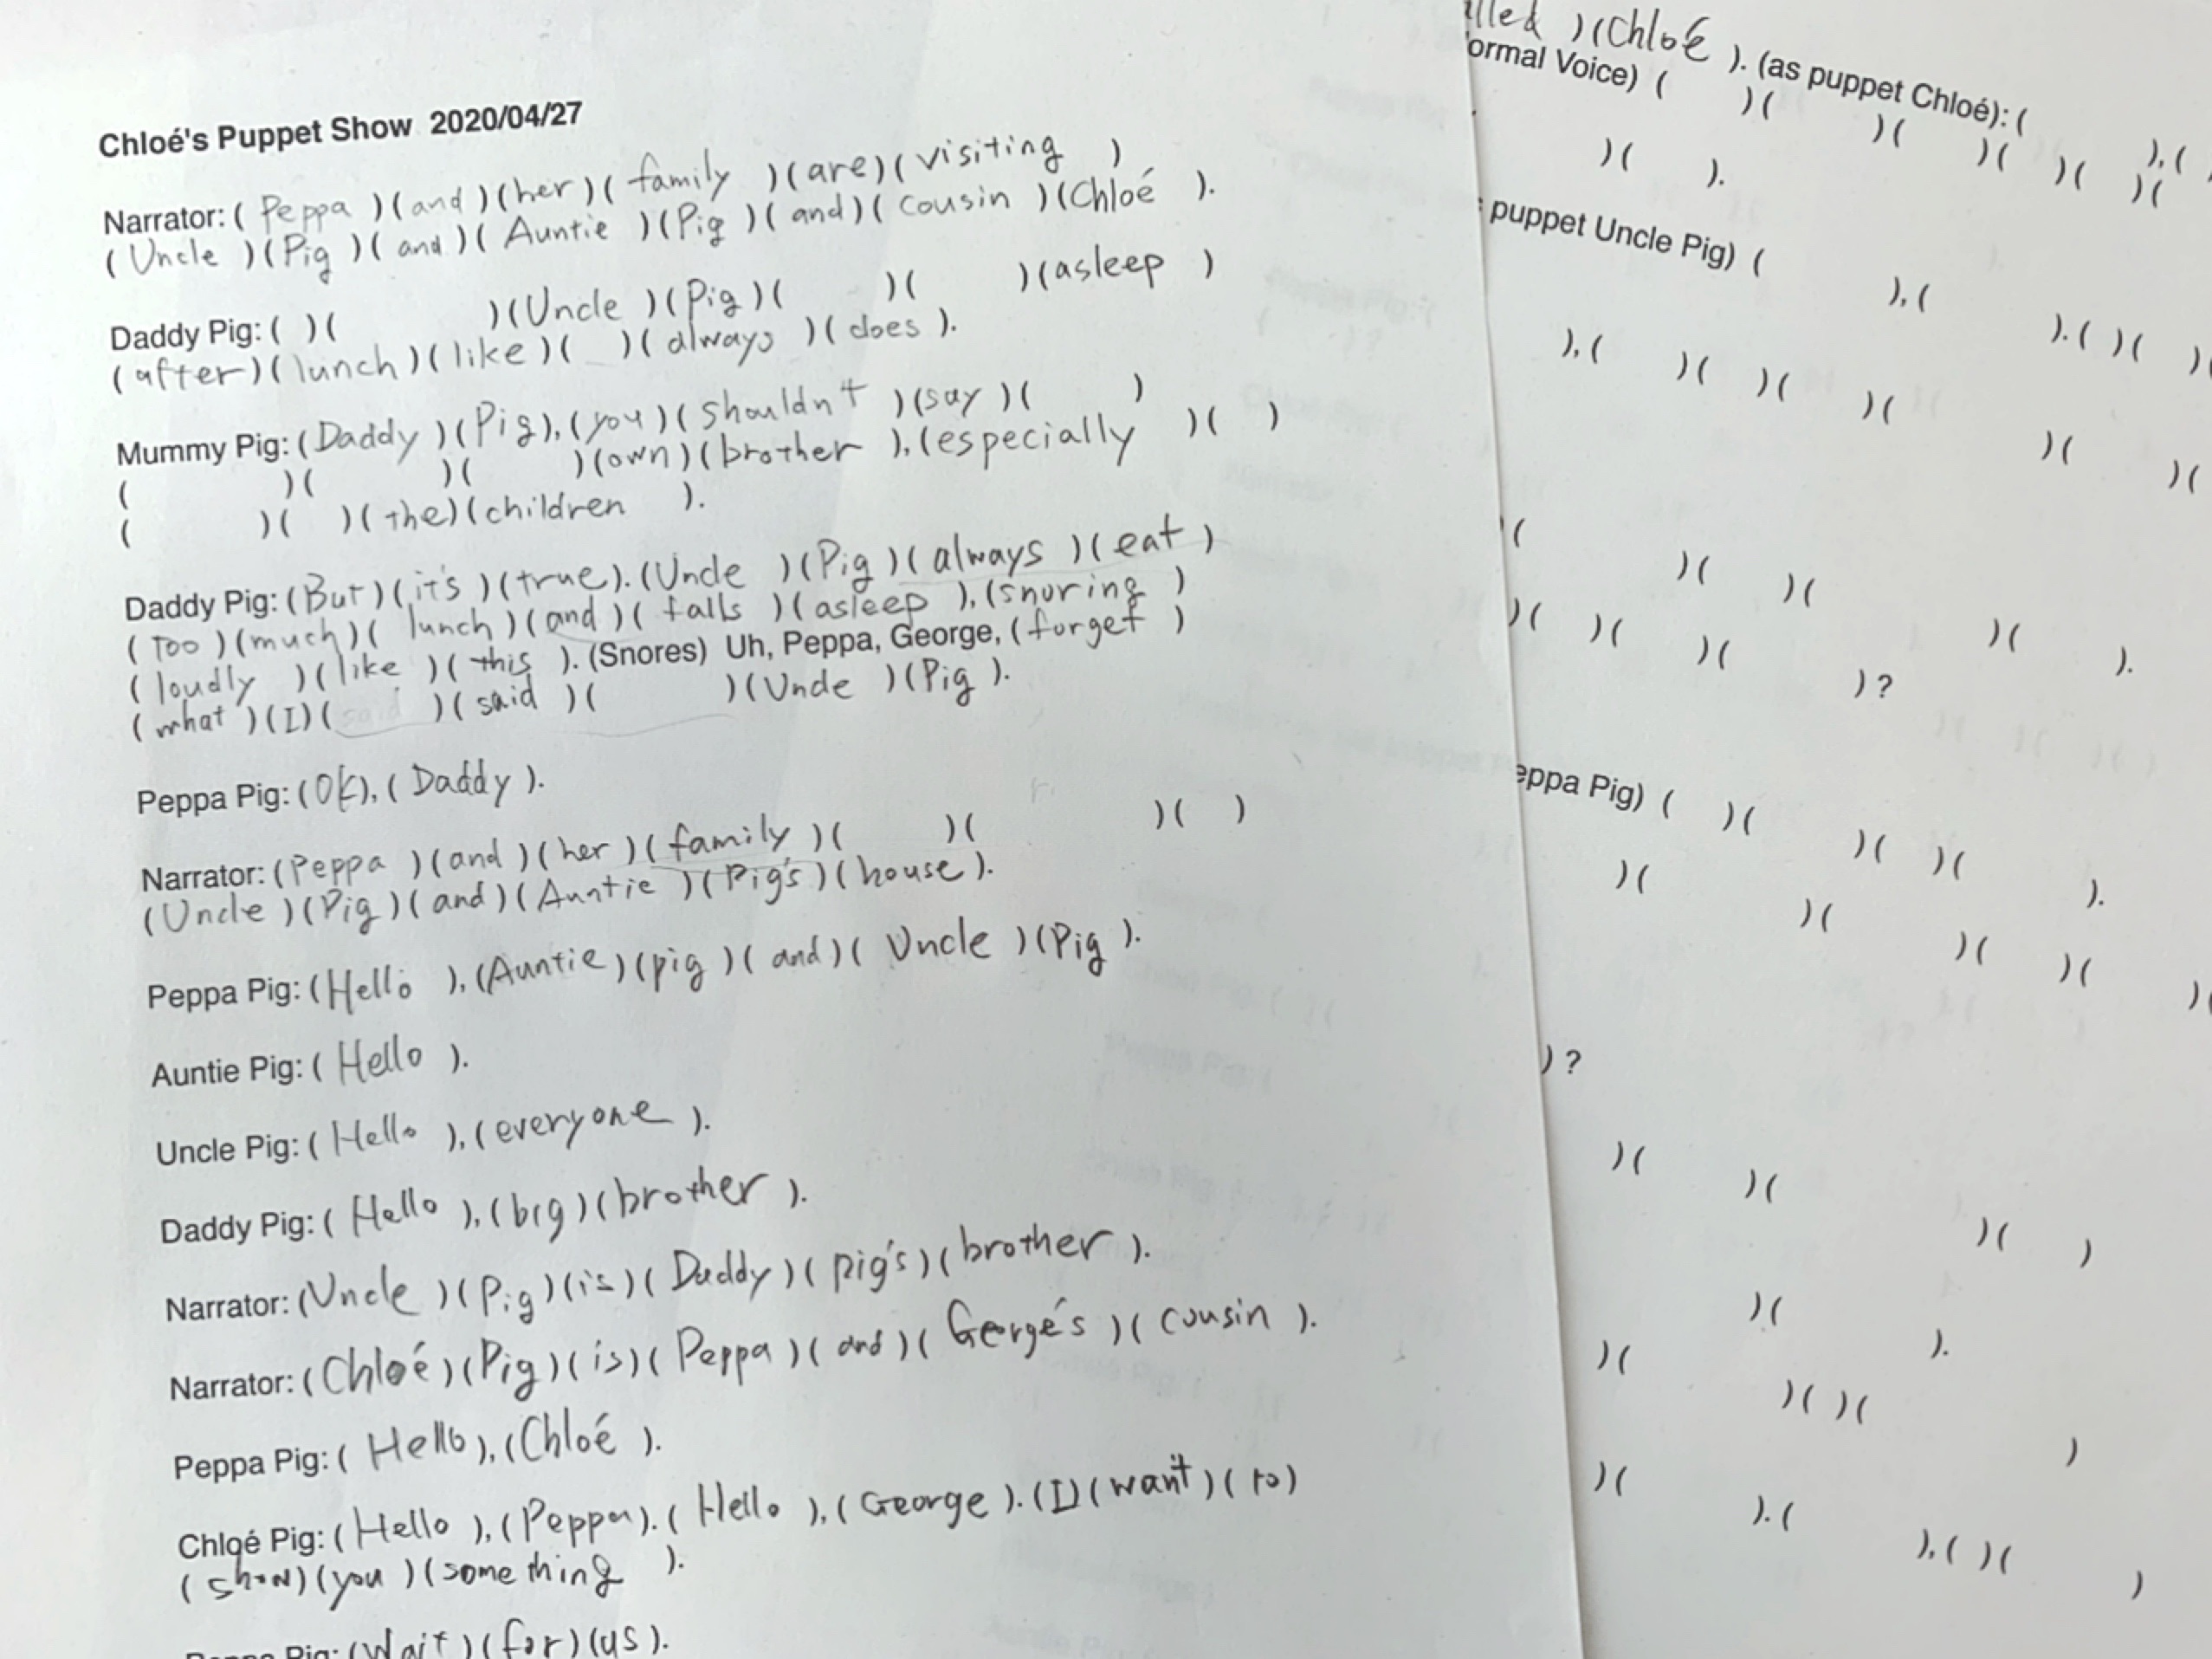 Chloé's Puppet Show 2020/04/27
Narrator: ( Peppa )( and )( her )( family )( are )( visiting )
( Uncle )( Pig )( and )( Auntie )( Pig )( and )( cousin )( Chloé ).
Daddy Pig: ( )( )( Uncle )( Pig )( )( )( asleep )
( after )( lunch )( like )( )( always )( does ).
Mummy Pig: ( Daddy )( Pig ), ( you )( shouldn't )( say )( )
( )( )( )( own )( brother ), ( especially )( )
( )( )( the )( children ).
Daddy Pig: ( But )( it's )( true ). ( Uncle )( Pig )( always )( eat )
( Too )( much )( lunch )( and )( falls )( asleep ), ( snoring )
( loudly )( like )( this ). (Snores) Uh, Peppa, George, ( forget )
( what )( I )( said )( said )( )( Uncle )( Pig ).
Peppa Pig: ( Ok ), ( Daddy ).
Narrator: ( Peppa )( and )( her )( family )( )( )( )
( Uncle )( Pig )( and )( Auntie )( Pig's )( house ).
Peppa Pig: ( Hello ), ( Auntie )( pig )( and )( Uncle )( Pig ).
Auntie Pig: ( Hello ).
Uncle Pig: ( Hello ), ( everyone ).
Daddy Pig: ( Hello ), ( big )( brother ).
Narrator: ( Uncle )( Pig )( is )( Daddy )( pig's )( brother ).
Narrator: ( Chloé )( Pig )( is )( Peppa )( and )( George's )( cousin ).
Peppa Pig: ( Hello ), ( Chloé ).
Chloé Pig: ( Hello ), ( Peppa ). ( Hello ), ( George ). ( I )( want )( to )
( show )( you )( something ).
Pig: ( Wait )( for )( us ).
lled )( Chloé ). (as puppet Chloé): ( ), (
ormal Voice) ( )( )( )( )( )(
)( ).
puppet Uncle Pig) ( ), ( ). ( )( )
), ( )( )( )( )( )(
( )( )( )( ).
)( )( )( ) ?
eppa Pig) ( )( )( )( ).
)( )( )( )( )(
) ?
)( )( )( )
)( ).
)( )( )( )
)( ). ( ), ( )( )